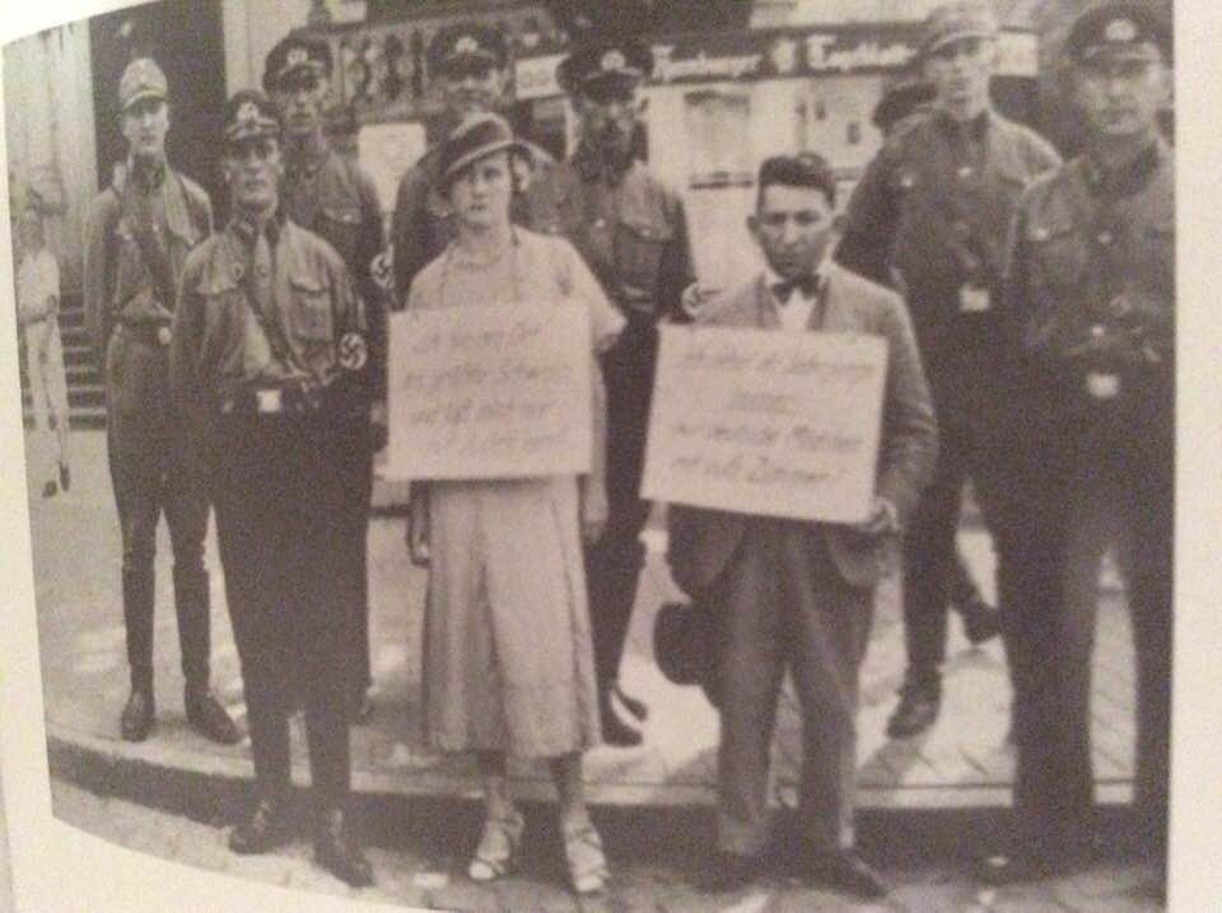 Hamburger Tageblatt
Ich bin am Ort
das größte Schwein
und laß mich nur
mit Juden ein!
Ich nehm als Judenjunge
immer
nur deutsche Mädchen
mit aufs Zimmer!